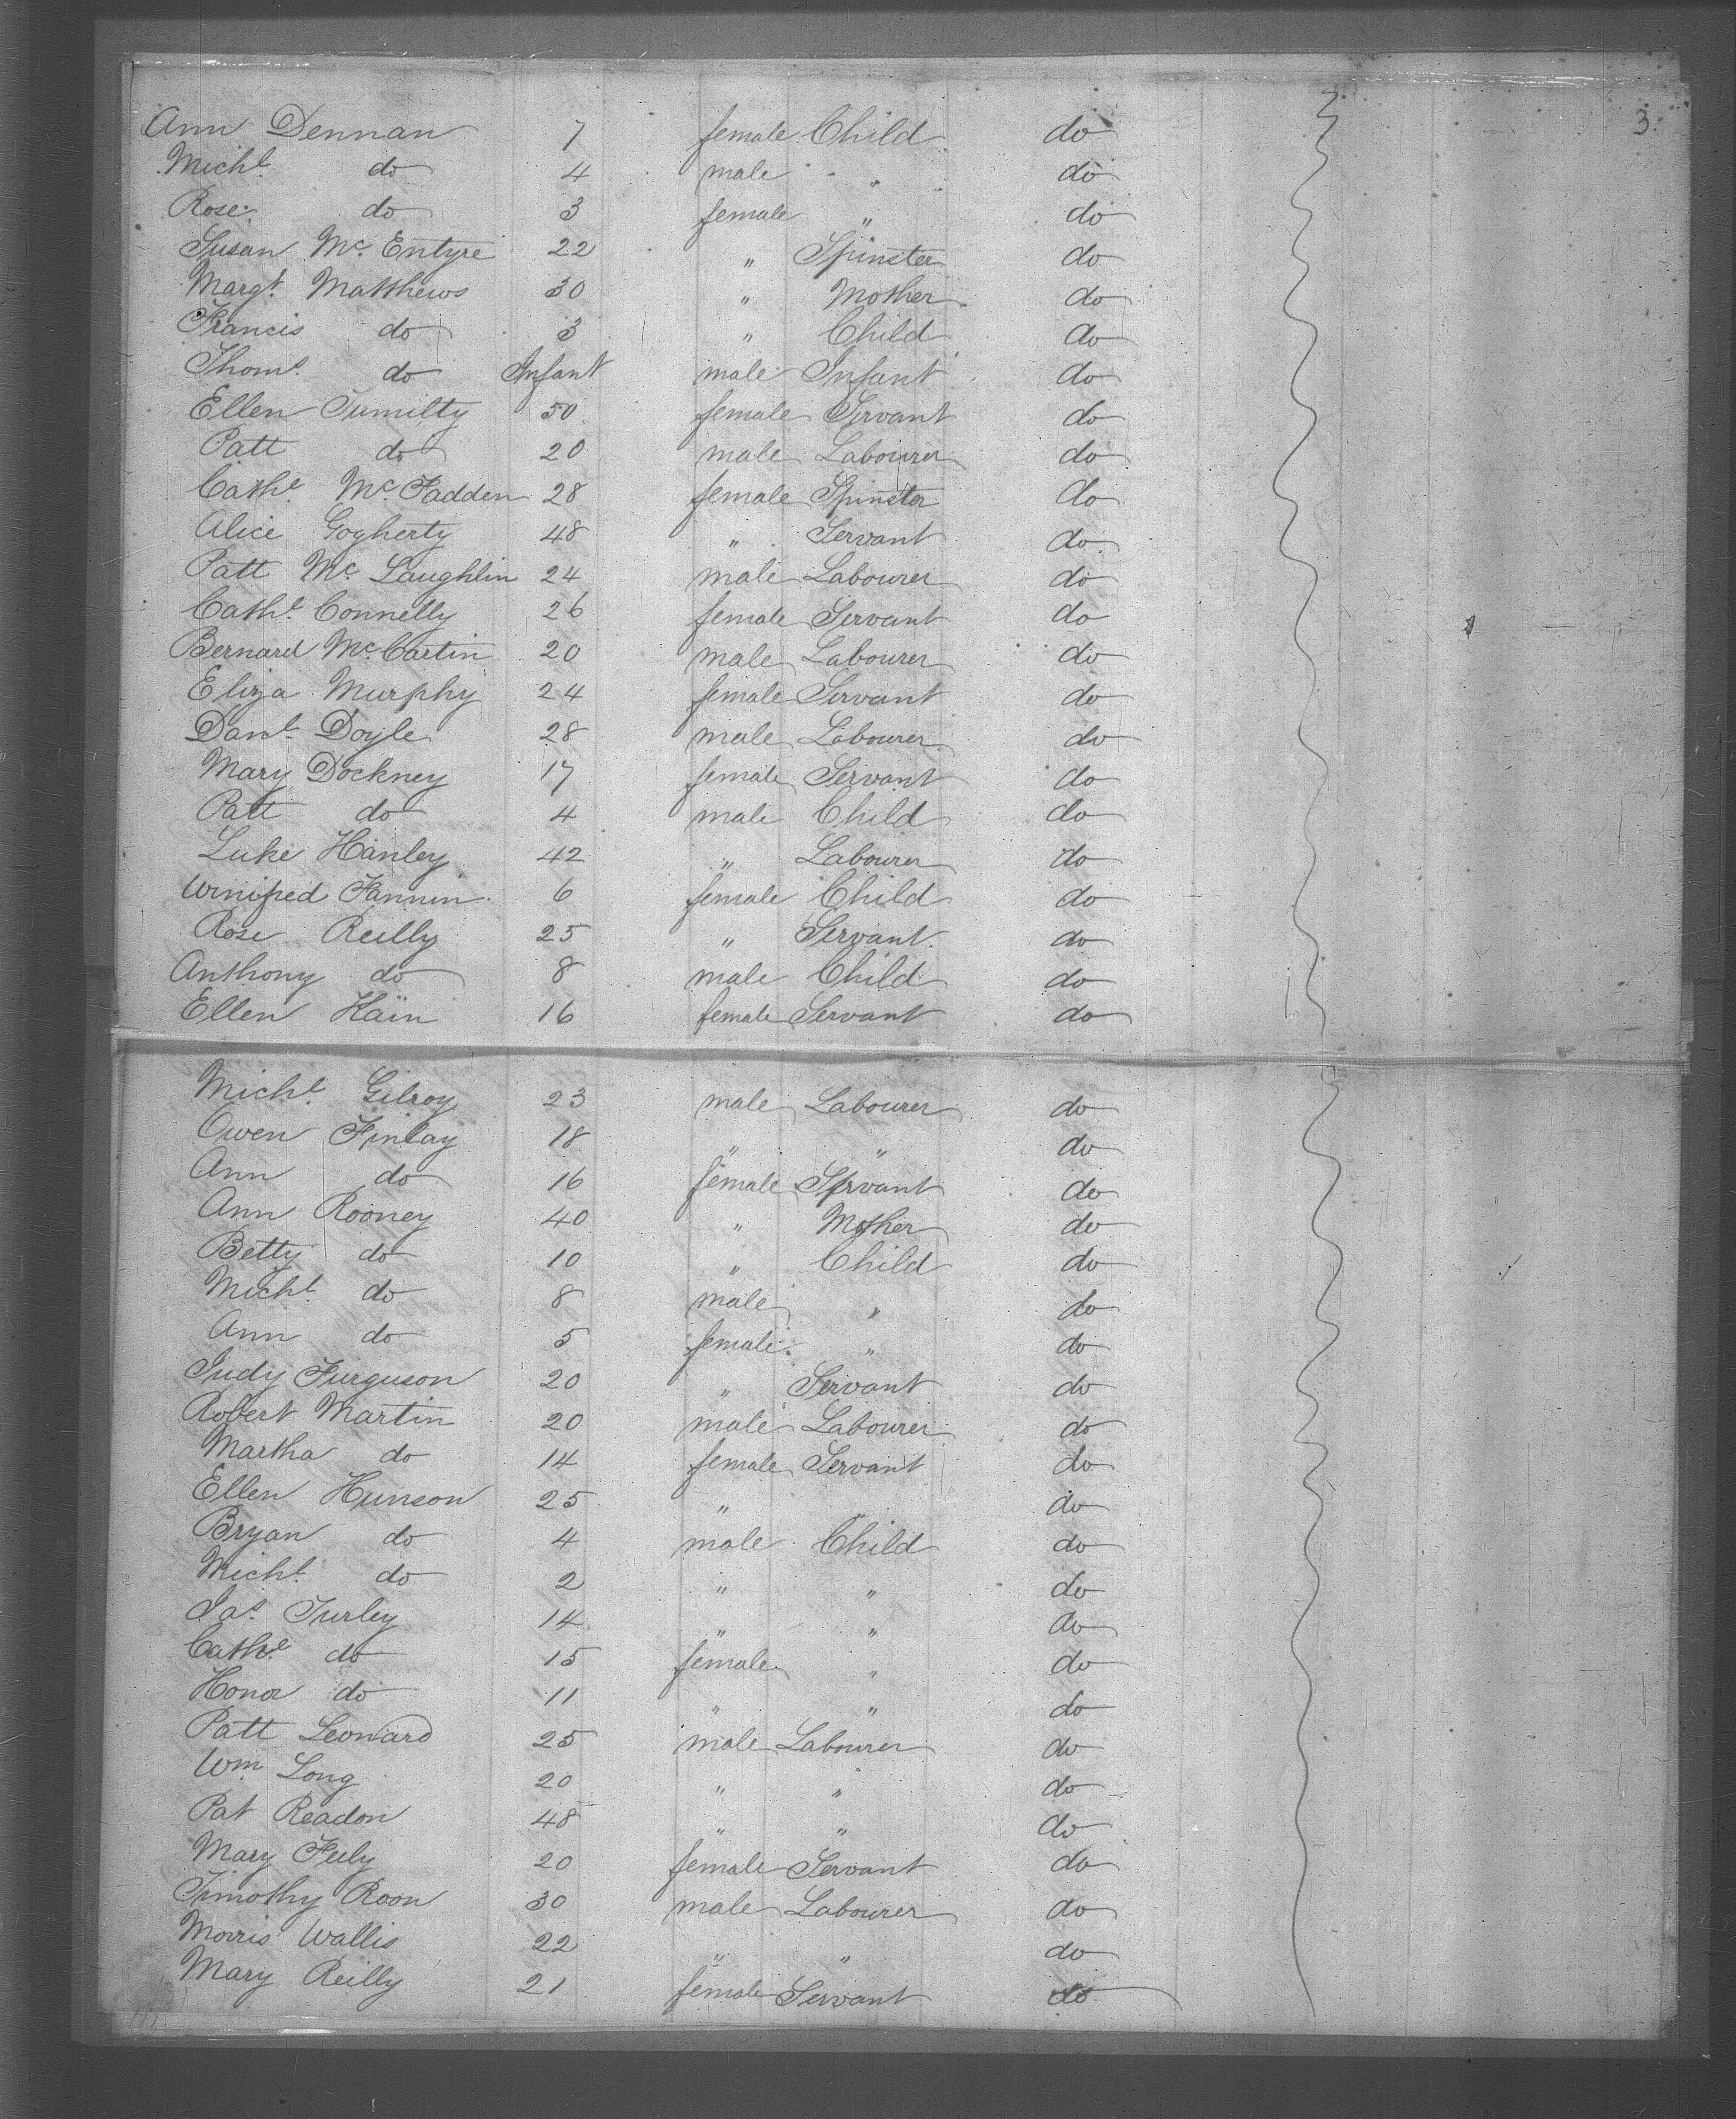 3.
Ann Dennan 7 female Child do
Michl. do 4 male " do
Rose. do 3 female " do
Susan Mc. Entyre 22 " Spinster do
Margt. Matthews 30 " Mother do
Francis do 3 " Child do
Thoms. do Infant male Infant do
Ellen Tumilty 50 female Servant do
Patt do 20 male Labourer do
Cathe. Mc. Fadden 28 female Spinster do
Alice Gogherty 48 " Servant do
Patt Mc. Laughlin 24 male Labourer do
Cathe. Connelly 26 female Servant do
Bernard Mc. Cartin 20 male Labourer do
Eliza Murphy 24 female Servant do
Danl. Doyle 28 male Labourer do
Mary Dockney 17 female Servant do
Patt do 4 male Child do
Luke Hanley 42 " Labourer do
Winifred Fannin 6 female Child do
Rose Reilly 25 " Servant do
Anthony do 8 male Child do
Ellen Kain 16 female Servant do
Michl. Gilroy 23 male Labourer do
Owen Finlay 18 " " do
Ann do 16 female Servant do
Ann Rooney 40 " Mother do
Betty do 10 " Child do
Michl. do 8 male " do
Ann do 5 female " do
Judy Furguson 20 " Servant do
Robert Martin 20 male Labourer do
Martha do 14 female Servant do
Ellen Hunson 25 " " do
Bryan do 4 male Child do
Michl. do 2 " " do
Jas. Turley 14 " " do
Cathe. do 15 female " do
Honor do 11 " " do
Patt Leonard 25 male Labourer do
Wm Long 20 " " do
Pat Readon 48 " " do
Mary Feely 20 female Servant do
Timothy Roon 30 male Labourer do
Morris Wallis 22 " " do
Mary Reilly 21 female Servant do